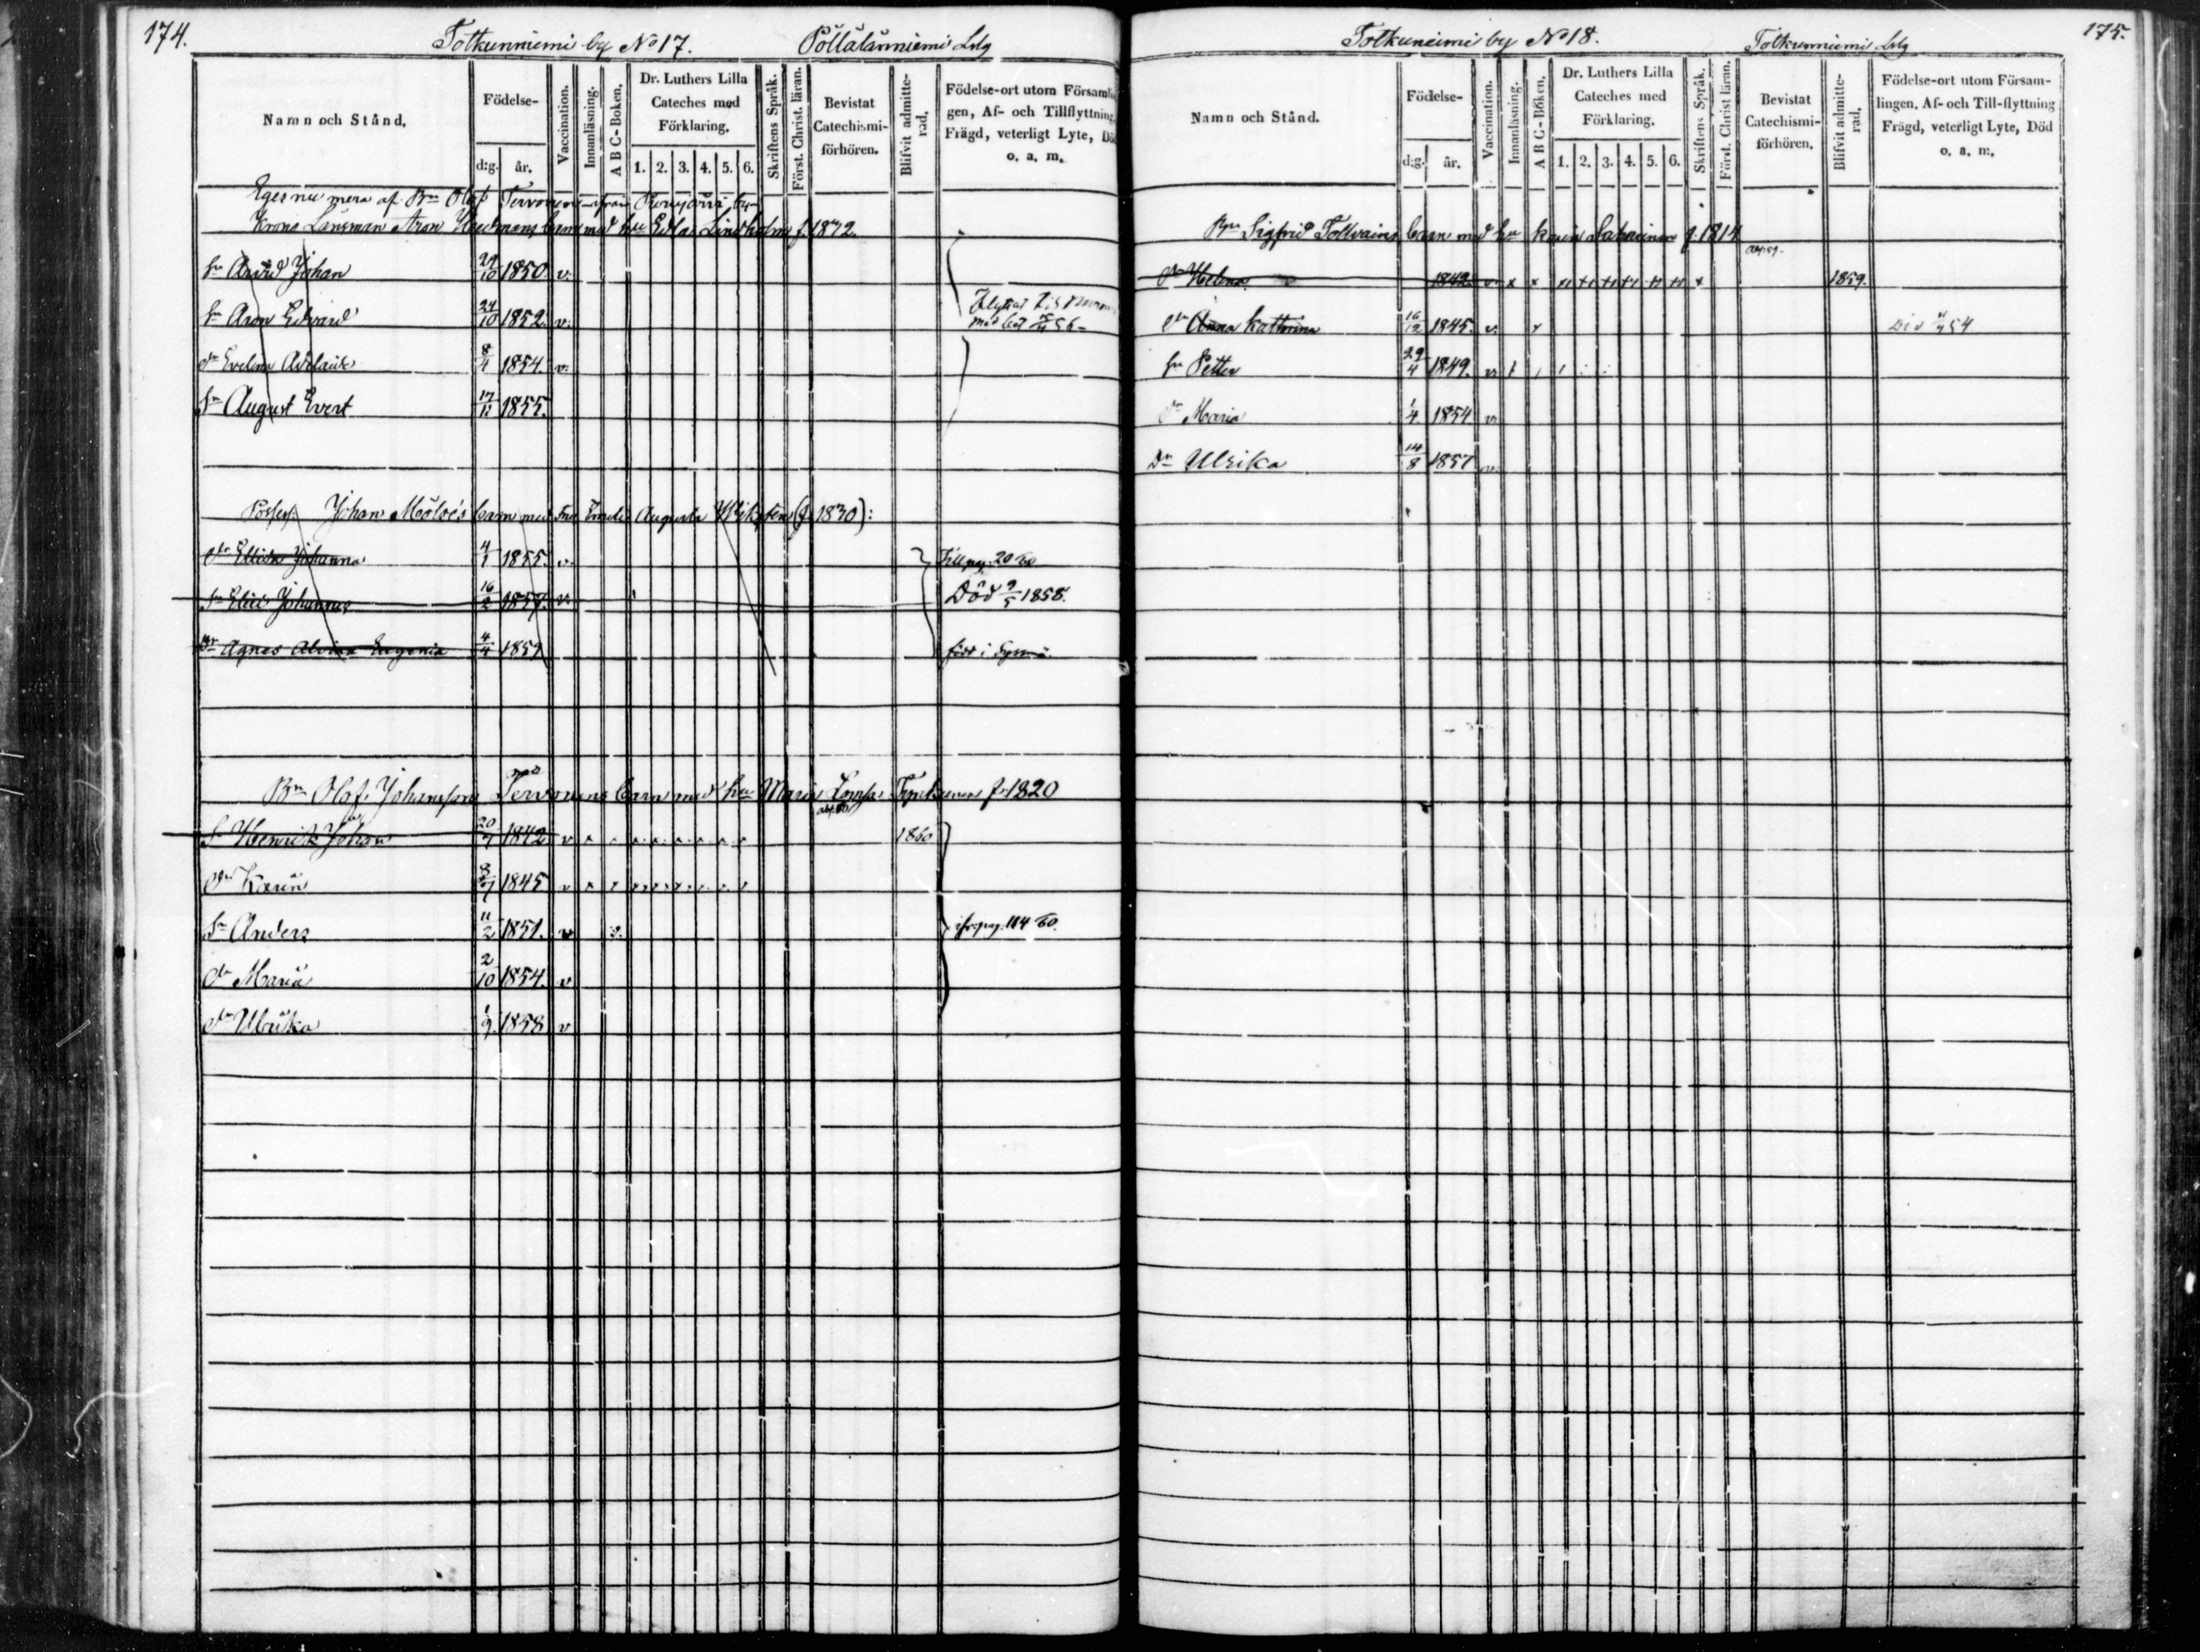 174.
Totkunniemi by No 17. Pöllälänniemi Ldg
Namn och Stånd.
Födelse-
d:g. år.
Vaccination.
Innanläsning.
A B C-Boken.
Dr. Luthers Lilla Cateches med Förklaring.
1. 2. 3. 4. 5. 6.
Skriftens Språk.
Först. Christ. läran.
Bevistat Catechismi-förhören.
Blifvit admitterad.
Födelse-ort utom Församlin
gen, Af- och Tillflyttning,
Frägd, veterligt Lyte, Död
o. a. m.
Eges nu mera af Bn Olof Tervonen från by
Krono Länsman Aron barn med hu Edla Lindholm f. 1832.
Sn Arvid Johan 29/10 1850. v.
Sn Aron Edvard 24/10 1852. v.
med bet 56
Dr Evelina Adelaide 8/4 1854. v.
Sn August Evert 17/12 1855.
Possess. Johan barn med Fru Emeli Augusta (f. 1830):
Dr Johanna 4/1 1855. v.
Till pag. 20 60
Sn Johannes 16/2 1857. v.
Död 9/5 1858.
Dr Agnes Alvina Eugenia 4/4 1859
född i Sysmä.
Bn Olof Johansson Tervonens barn med hu Maria f. 1820
Sn Henrik Johan 20/7 1842 v 1860
Dr Karin 8/7 1845 v
Sn Anders 11/2 1851. v
ifr. pag. 114 60.
Dr Maria 2/10 1854. v
Dr Ulrika 1/9. 1858 v
175.
Totkuneimi by No 18. Totkunniemi Ldg
Namn och Stånd.
Födelse-
d:g. år.
Vaccination.
Innanläsning.
A B C-Boken.
Dr. Luthers Lilla Cateches med Förklaring.
1. 2. 3. 4. 5. 6.
Skriftens Språk.
Först. Christ läran.
Bevistat Catechismi-förhören.
Blifvit admitterad.
Födelse-ort utom Försam-
lingen, Af- och Till-flyttning
Frägd, veterligt Lyte, Död
o. a. m.
Bn Sigfrid Tolvains barn med hu Karin f. 1814
Dr Helena 1842 v. x x 1859.
Dr Anna Kathrina 16/12 1845. v. x
Död 54
Sn Petter 29/4 1849. v.
Dr Maria 1/4. 1854. v.
Dr Ulrika 14/8 1857 v.